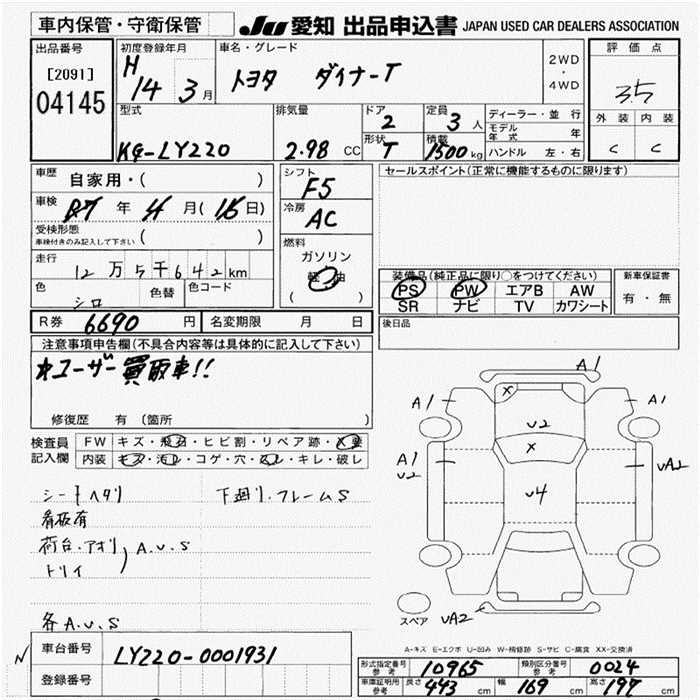 車内保管・守衛保管 JU 愛知 出品申込書 JAPAN USED CAR DEALERS ASSOCIATION
出品番号 初度登録年月 車名・グレード 2WD・4WD 評価点
[2091] H 14 3月 トヨタ ダイナーT 3.5
04145 型式 排気量 ドア 2 定員 3人 ディーラー・並行 外装 内装
モデル年式 年
KG-LY220 2.98 CC 形状 T 積載 1500kg ハンドル 左・右 C C
車歴 自家用・( ) シフト F5 セールスポイント(正常に機能するものに限ります)
車検 R7年 4月(16日) 冷房 AC
受検形態 ( )
車検付きのみ記入して下さい
燃料
走行 12万5千642km ガソリン
軽油
( )
装備品(純正品に限り○をつけてください) 新車保証書
色 シロ 色替 色コード PS PW エアB AW 有・無
SR ナビ TV カワシート
R券 6690円 名変期限 月 日 後日品
注意事項申告欄(不具合内容等は具体的に記入して下さい)
*ユーザー買取車!!
修復歴 有(箇所 )
検査員 FW キズ・飛石・ヒビ割・リペア跡・X要
記入欄 内装 キズ・汚レ・コゲ・穴・スレ・キレ・破レ
シートヘタリ 下廻リ.フレームS
看板有
荷台.アオリ
トリイ A.U.S
各A.U.S
A1
A1 A1
U2
X
X
A1
U2
UA2
U4
スペア UA2
A-キズ E-エクボ U-凹み W-補修跡 S-サビ C-腐食 XX-交換済
N 車台番号 LY220-0001931
登録番号
形式指定番号 参考 10965 類別区分番号 参考 0024
車庫証明用 参考 長さ 443cm 幅 169cm 高さ 197cm